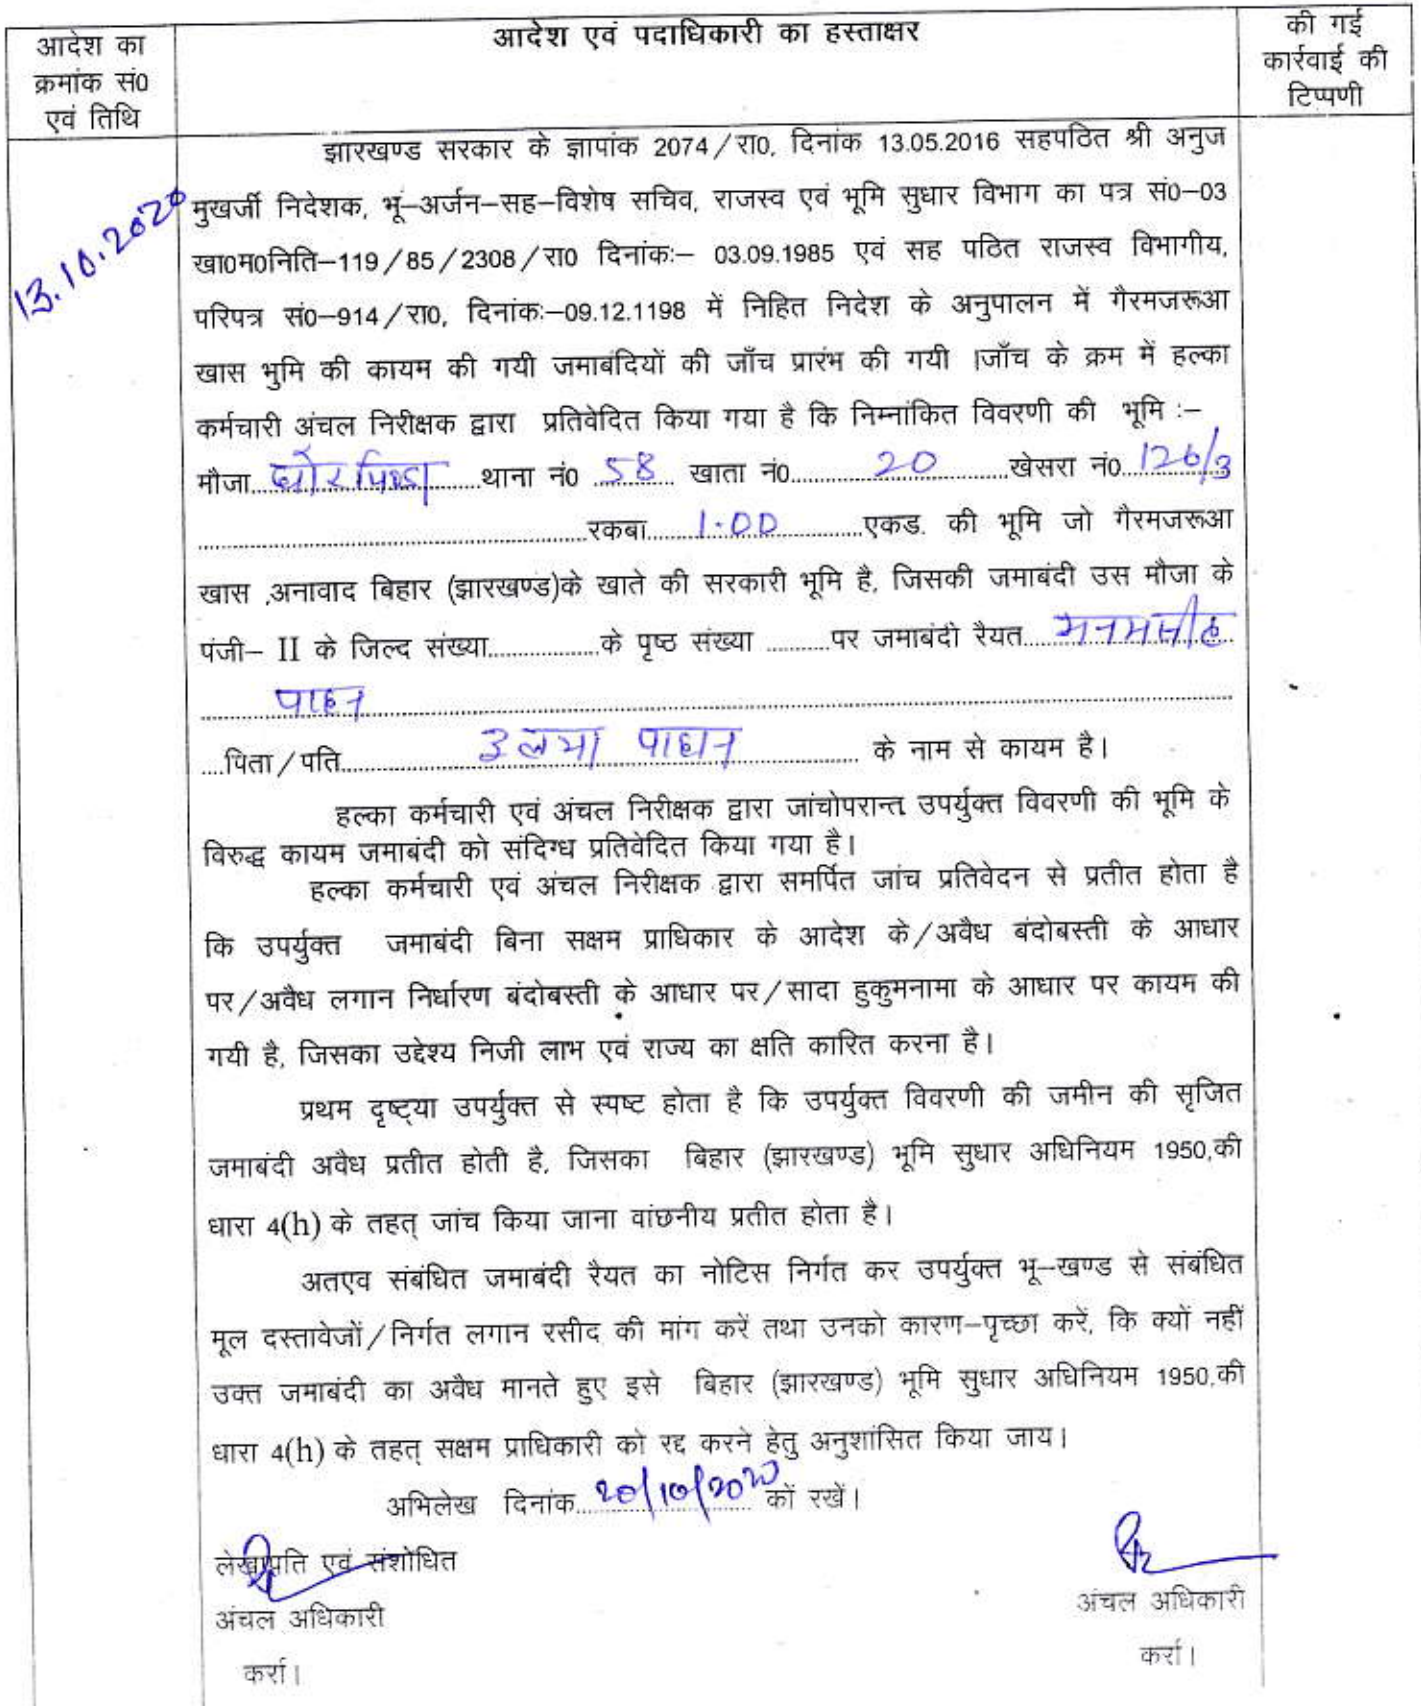 आदेश का
क्रमांक सं0
एवं तिथि
आदेश एवं पदाधिकारी का हस्ताक्षर
की गई
कार्रवाई की
टिप्पणी
13.10.2020
झारखण्ड सरकार के ज्ञापांक 2074/रा0, दिनांक 13.05.2016 सहपठित श्री अनुज
मुखर्जी निदेशक, भू–अर्जन–सह–विशेष सचिव, राजस्व एवं भूमि सुधार विभाग का पत्र सं0–03
खा0म0निति–119/85/2308/रा0 दिनांकः– 03.09.1985 एवं सह पठित राजस्व विभागीय,
परिपत्र सं0–914/रा0, दिनांकः–09.12.1198 में निहित निदेश के अनुपालन में गैरमजरूआ
खास भुमि की कायम की गयी जमाबंदियों की जाँच प्रारंभ की गयी ।जाँच के क्रम में हल्का
कर्मचारी अंचल निरीक्षक द्वारा प्रतिवेदित किया गया है कि निम्नांकित विवरणी की भूमि :–
मौजा.......... थाना नं0 ..58.. खाता नं0..........20..........खेसरा नं0..126/3
..........रकबा.....1.00..........एकड. की भूमि जो गैरमजरूआ
खास ,अनावाद बिहार (झारखण्ड)के खाते की सरकारी भूमि है, जिसकी जमाबंदी उस मौजा के
पंजी– II के जिल्द संख्या..........के पृष्ठ संख्या ..........पर जमाबंदी रैयत..........
पाहन
....पिता/पति.......... पाहन .......... के नाम से कायम है।
हल्का कर्मचारी एवं अंचल निरीक्षक द्वारा जांचोपरान्त उपर्युक्त विवरणी की भूमि के
विरुद्ध कायम जमाबंदी को संदिग्ध प्रतिवेदित किया गया है।
हल्का कर्मचारी एवं अंचल निरीक्षक द्वारा समर्पित जांच प्रतिवेदन से प्रतीत होता है
कि उपर्युक्त जमाबंदी बिना सक्षम प्राधिकार के आदेश के/अवैध बंदोबस्ती के आधार
पर/अवैध लगान निर्धारण बंदोबस्ती के आधार पर/सादा हुकुमनामा के आधार पर कायम की
गयी है, जिसका उद्देश्य निजी लाभ एवं राज्य का क्षति कारित करना है।
प्रथम दृष्ट्या उपर्युक्त से स्पष्ट होता है कि उपर्युक्त विवरणी की जमीन की सृजित
जमाबंदी अवैध प्रतीत होती है, जिसका बिहार (झारखण्ड) भूमि सुधार अधिनियम 1950,की
धारा 4(h) के तहत् जांच किया जाना वांछनीय प्रतीत होता है।
अतएव संबंधित जमाबंदी रैयत का नोटिस निर्गत कर उपर्युक्त भू–खण्ड से संबंधित
मूल दस्तावेजों/निर्गत लगान रसीद की मांग करें तथा उनको कारण–पृच्छा करें, कि क्यों नहीं
उक्त जमाबंदी का अवैध मानते हुए इसे बिहार (झारखण्ड) भूमि सुधार अधिनियम 1950,की
धारा 4(h) के तहत् सक्षम प्राधिकारी को रद्द करने हेतु अनुशांसित किया जाय।
अभिलेख दिनांक..20/10/2020..कों रखें।
लेखापति एवं संशोधित
अंचल अधिकारी
कर्रा।
अंचल अधिकारी
कर्रा।